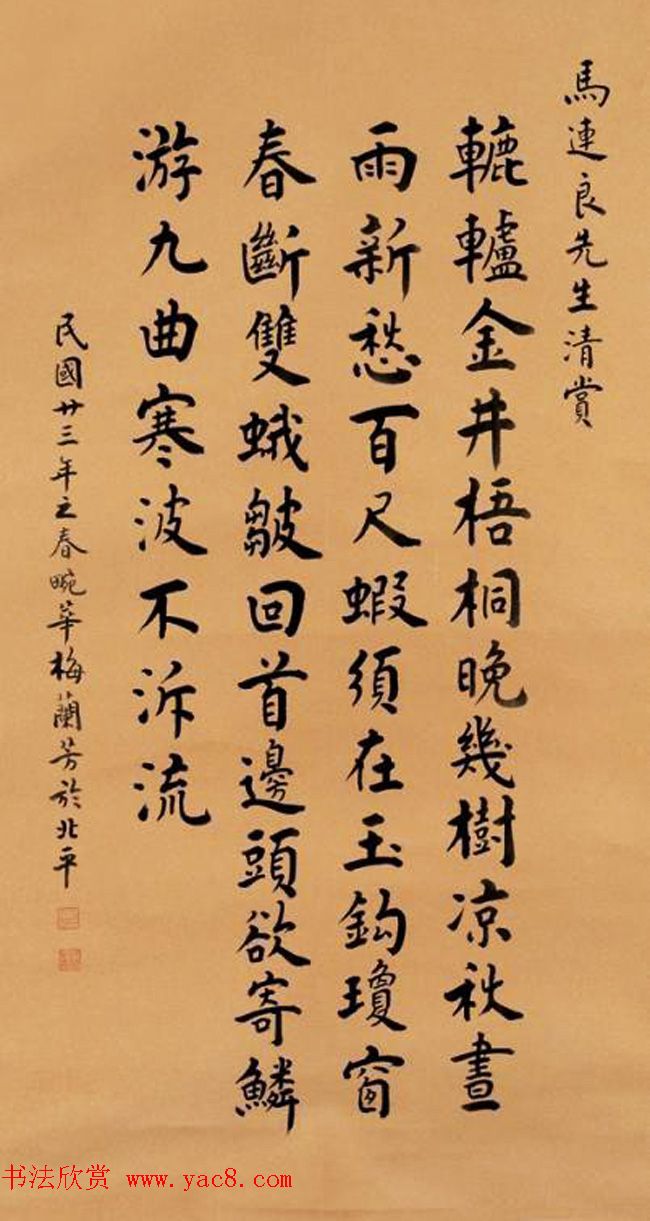 馬連良先生清賞
轆轤金井梧桐晚幾樹凉秋晝
雨新愁百尺蝦須在玉鈎瓊窗
春斷雙蛾皺回首邊頭欲寄鱗
游九曲寒波不泝流
民國廿三年之春畹華梅蘭芳於北平
书法欣赏 www.yac8.com